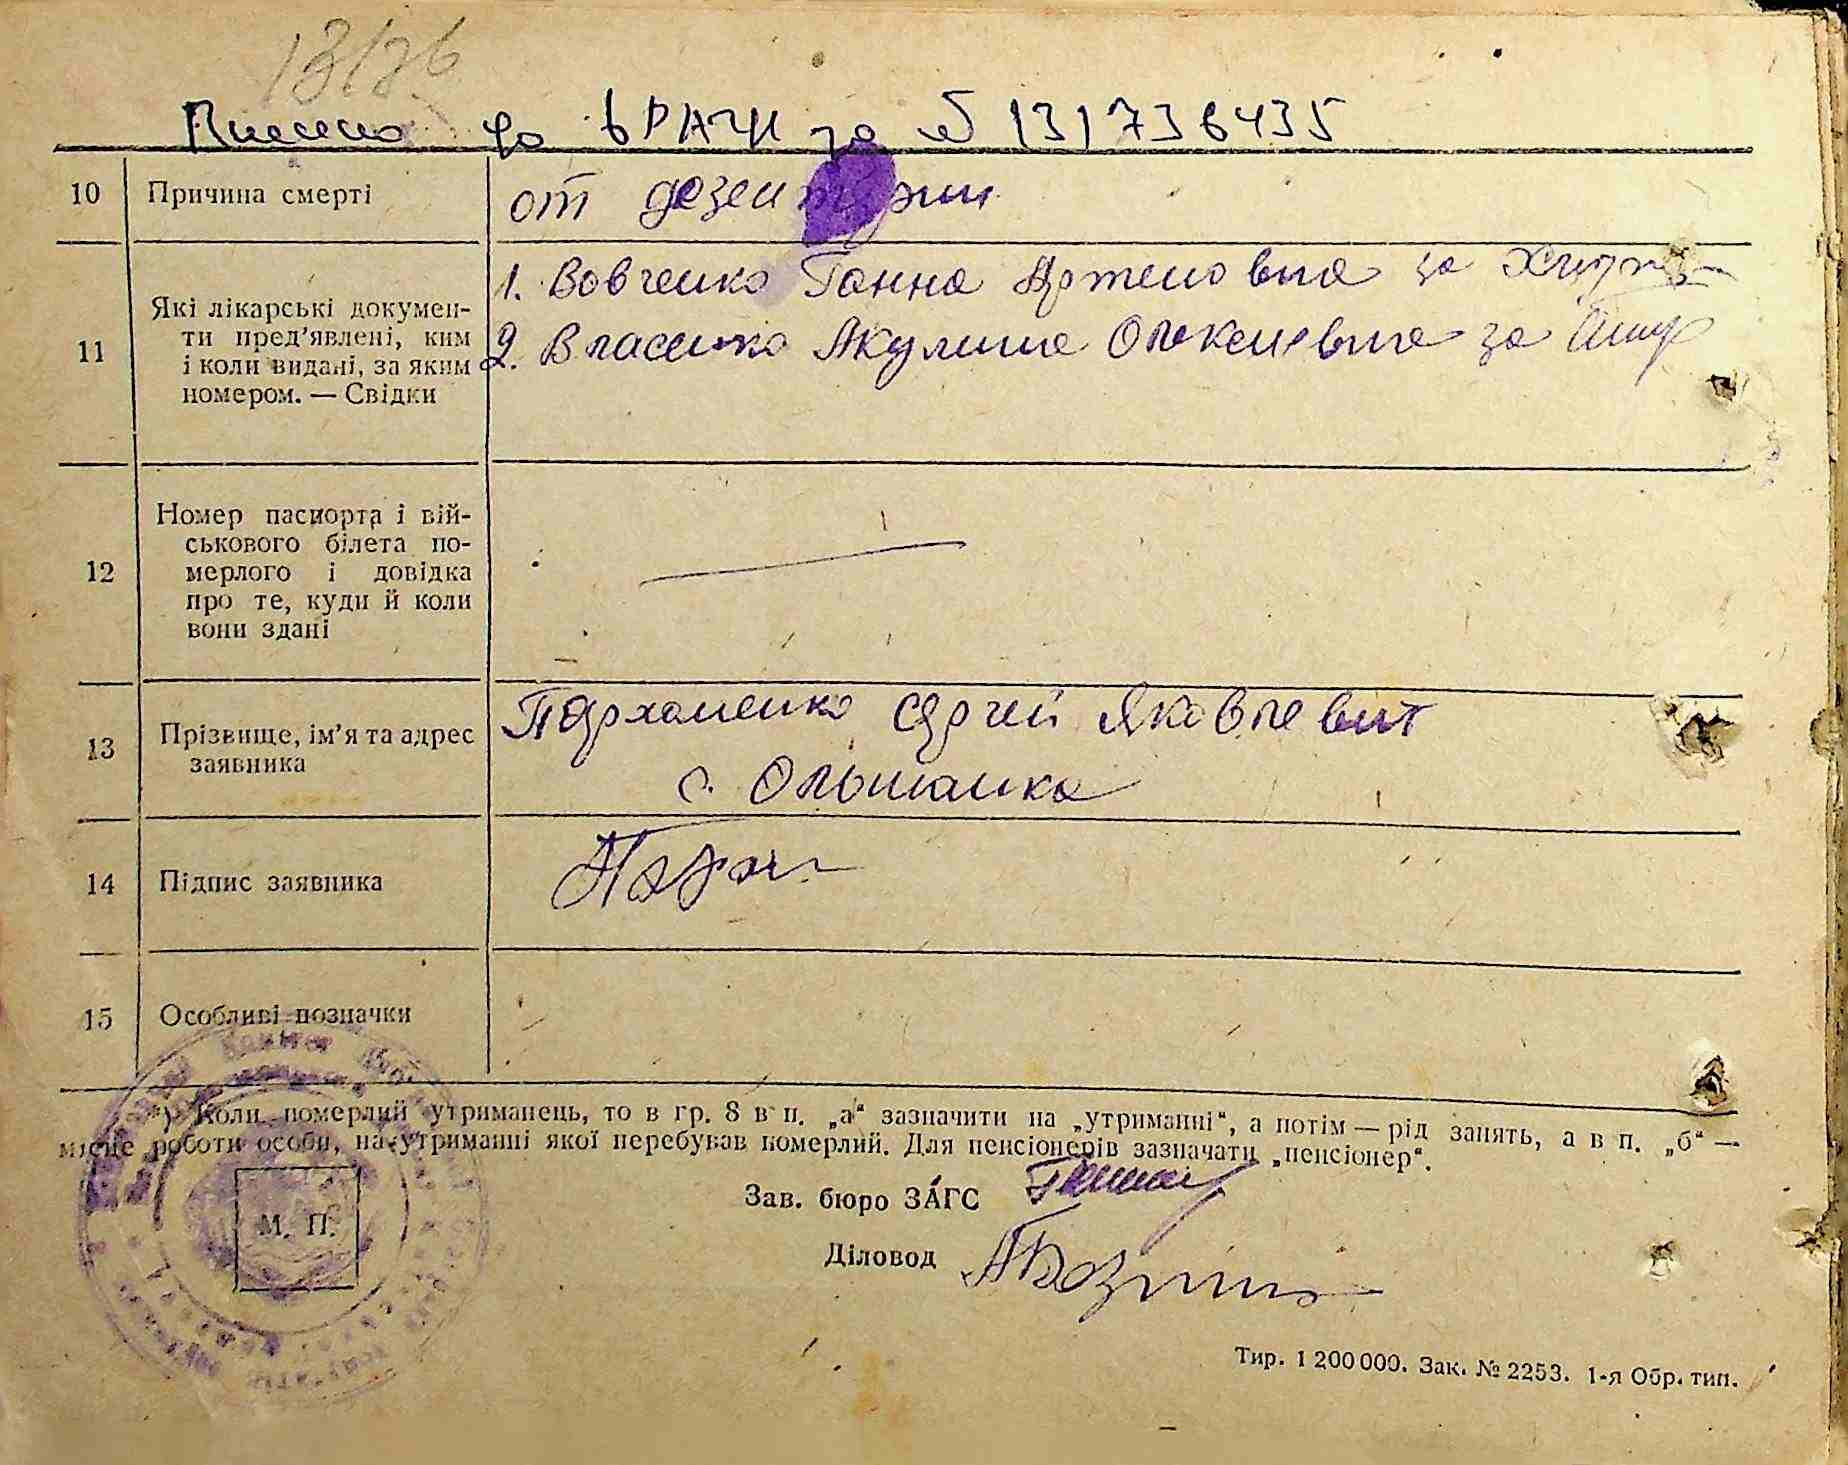 13/26
Внесено до ДРАЦС за № 131736435
10 Причина смерті
от дезентирии
11 Які лікарські докумен-
ти пред’явлені, ким
і коли видані, за яким
номером. — Свідки
1. Вовченко Ганна Артемовна за
2. Власенко Акулина Олексиевна за
12 Номер паспорта і вій-
ськового білета по-
мерлого і довідка
про те, куди й коли
вони здані
—
13 Прізвище, ім’я та адрес
заявника
Пархоменко Сергей Яковлевич
с. Ольшанка
14 Підпис заявника
15 Особливі позначки
*) Коли померлий утриманець, то в гр. 8 в п. „а“ зазначити на „утриманні“, а потім — рід занять, а в п. „б“ —
місце роботи особи, на утриманні якої перебував померлий. Для пенсіонерів зазначати „пенсіонер“.
М. П.
Зав. бюро ЗАГС
Діловод
Тир. 1 200 000. Зак. № 2253. 1-я Обр. тип.